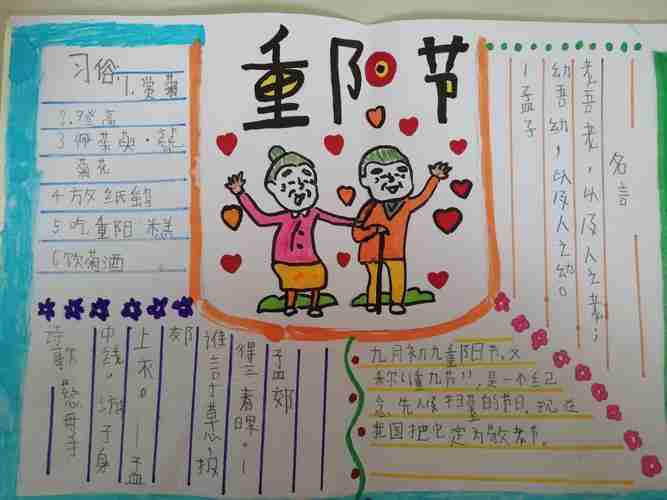 重阳节
习俗
1.赏菊
2.登高
3.佩茱萸·簪
菊花
4.放纸
5.吃重阳糕
6.饮菊酒
名言
老吾老,以及人之老;
幼吾幼,以及人之幼。
—孟子
诗歌 慈母手
中线,游子身
上衣。—孟
郊
谁言草心,报
得三春晖。—
孟郊
九月初九重阳日节,又
"重九节",是一个
念先人扫墓的节日,现在
我国把它定为敬老节。